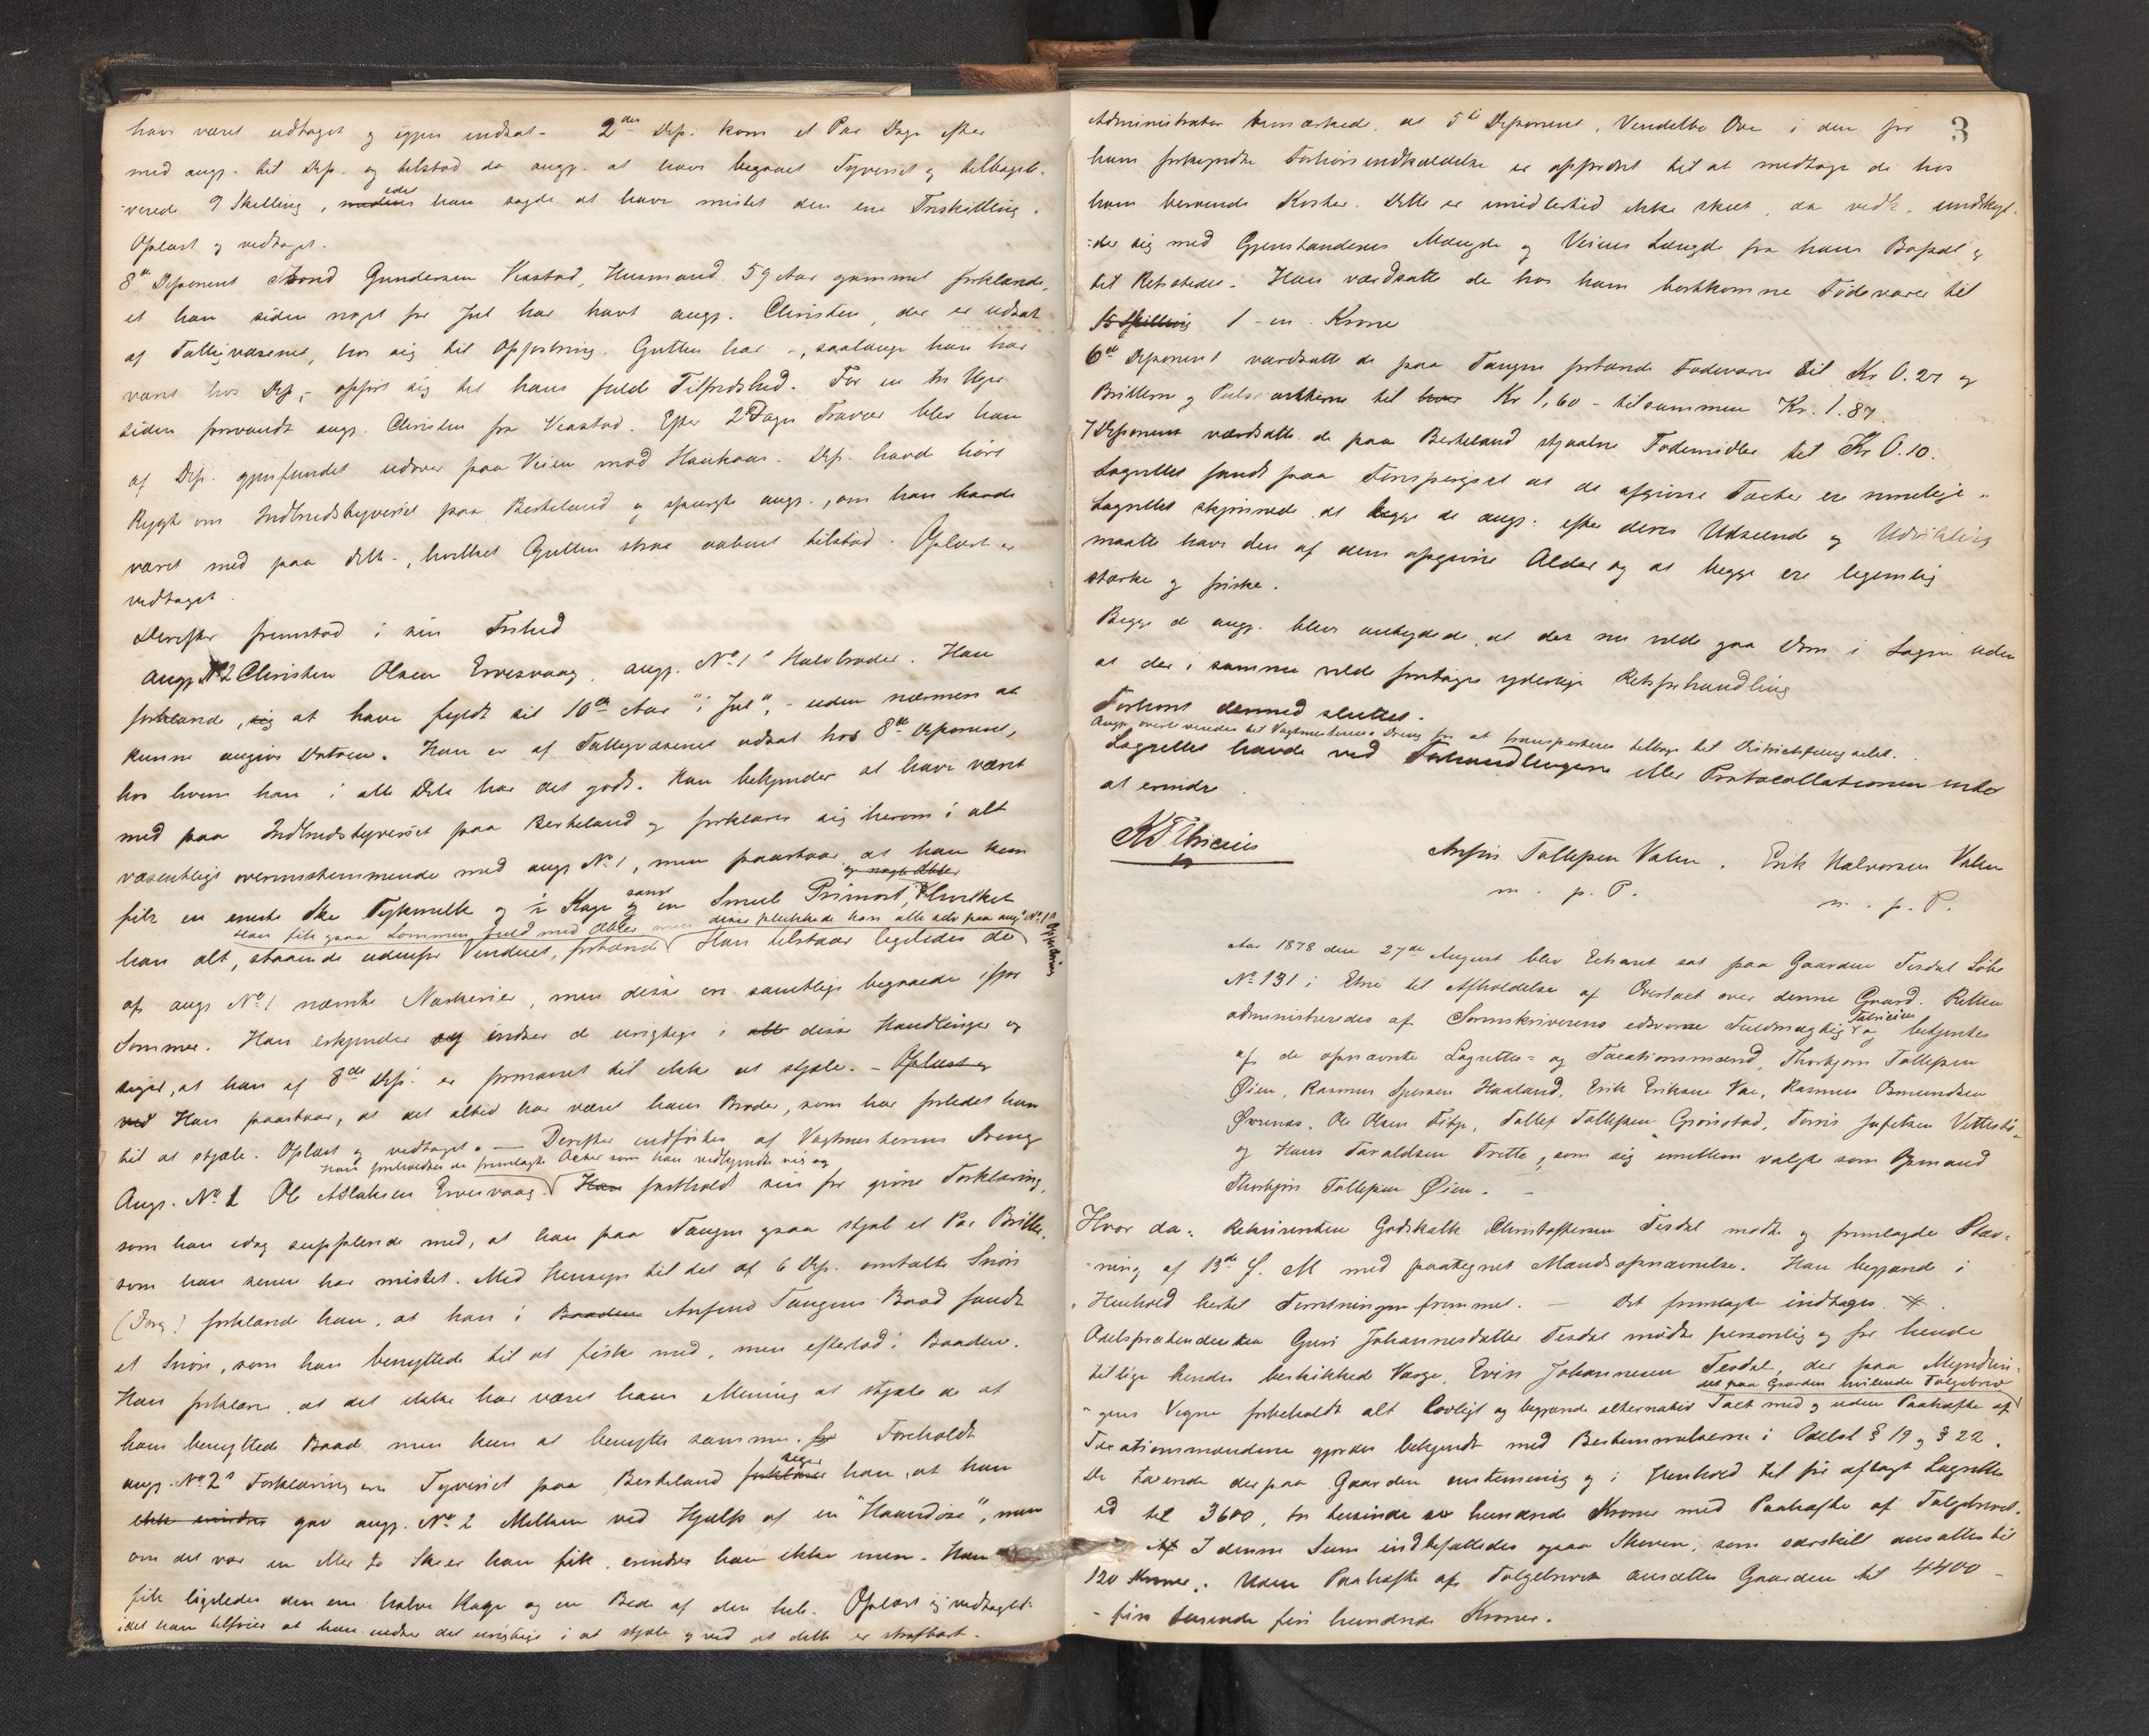 have været udtaget og igjen indsat. 2den Dep. kom et Par Dage efter
med angj. til Dep. og tilstod da angj. at have begaaet Tyveriet og tilbagele-
verede 9 Skilling, idet han sagde at have mistet den ene Treskilling.
Oplæst og vedtaget.
8de Deponent Gundersen Vestad, Husmand, 59 Aar gammel forklarede,
at han siden noget før Jul har havt angj. Christen, der er udsat
af Fattigvæsenet, hos sig til Opfostring. Gutten har -, saalænge han har
været hos Dep., - opført sig til hans fulde Tilfredshed. For en tre Uger
siden forsvandt angj. Christen fra Vestad. Efter 2 Dages Fravær blev han
af Dep. gjenfundet udover paa Veien mod Haukaas. Dep. havde hørt
Rygte om Indbrudstyveriet paa Berkeland og spurgte angj., om han havde
været med paa dette, hvilket Gutten strax aabent tilstod. Oplæst og
vedtaget.
Derefter fremstod i sin Frihed
angj. No 2 Christen Olsen Ervesvaag, angj. No 1s Halvbroder. Han
forklarede, at have fyldt sit 10de Aar "i Jul", - uden nærmere at
kunne angive Datoen. Han er af Fattigvæsenet udsat hos 8de Deponent,
hos hvem han i alle Dele har det godt. Han bekjender at have været
med paa Indbrudstyveriet paa Berkeland og forklarer sig herom i alt
væsentligt overensstemmende med angj. No 1, men paastaar, at han kun
fik en eneste Ske Tykmelk og ½ Kage samt en Smule Primost, hvilket
Han fik ogsaa Lommen fuld med Æbler men disse plukkede han alle selv paa angj. No 1s Opfordring
han alt, staaende udenfor Vinduet, fortærede. Han tilstaar ligeledes de
af angj. No 1 nævnte Naskerier, men disse ere samtlige begaaede ifjor
Sommer. Han erkjender og indser det urigtige i disse Handlinger og
siger, at han af 8de Dep. er formanet til ikke at stjæle. - Oplæst og
ved Han paastaar, at det altid har været hans Broder, som har forledet ham
til at stjæle. Oplæst og vedtaget. - Derefter indførtes af Vagtmesterens Dreng
Han foreholdtes de fremlagte Acter som han vedkjendte sig og
Angj. No 1 Ole Aslaksen Ervesvaag. Han fastholdt sin før givne Forklaring,
som han idag supplerede med, at han paa Tangen ogsaa stjal et Par Briller,
som han senere har mistet. Med Hensyn til det af 6 Dep. omtalte Snøre
(Dorg) forklarede han, at han i Baaden Anfind Tangens Baad fandt
et Snøre, som han benyttede til at fiske med, men efterlod i Baaden.
Han forklarer, at det ikke har været hans Mening at stjæle de af
ham benyttede Baad men kun at benytte samme. Foreholdt
angj. No 2s Forklaring om Tyveriet paa Berkeland siger han, at han
ikke erindrer gav angj. No 2 Melken ved Hjælp af en "Haandøse", men
om det var en eller to Skeer han fik, erindrer han ikke men. Han
fik ligeledes den ene halve Kage og en Bede af den hele. Oplæst og vedtaget
idet han tilføier at han indser det urigtige i at stjæle og ved at dette er strafbart.
3
Administrator bemærkede, at 5te Deponent, Vendelbo Ove i den for
ham forkyndte Forhørsindkaldelse er opfordret til at medtage de hos
ham beroende Koster. Dette er imidlertid ikke skeet, da vedk. undskyl-
der sig med Gjenstandenes Mængde og Veiens Længde fra hans Bopæl og
til Retsstedet. Han værdsatte de hos ham bortkomne Fødevarer til
15 Skilling 1 - en - Krone
6te Deponent værdsatte de paa Tangen fortærede Fødevarer til Kr 0.27 og
Brillerne og til Kr 1,60 - tilsammen Kr. 1.87.
7 Deponent værdsatte de paa Berkeland stjaalne Fødemidler til Kr 0.10.
Lagrettet fandt paa Forespørgsel at de afgivne Taxter ere rimelige.
Lagrettet skjønnede at begge de angj. efter deres Udseende og Udvikling
maatte have den af dem opgivne Alder og at begge ere legemlig
stærke og friske.
Begge de angj. blev antydede, at der nu vilde gaa Dom i Sagen uden
at der i samme vilde foretages yderligere Retsforhandling
Forhøret dermed sluttet.
Angj. overleveredes til Vagtmesterens Dreng for at transporteres tilbage til Districtsfængselet.
Lagrettet havde ved Forhandlingerne eller Protocollationen intet
at erindre.
Anfin Tollefsen Valen. Erik Halvorsen Valen
m. p. P. m. p. P.
Aar 1878 den 27de August blev Extraret sat paa Gaarden Tesdal Løbe
No 131 i Etne til Afholdelse af Overtaxt over denne Gaard. Retten
administreredes af Sorenskriverens edsvorne Fuldmægtig Fabricius og betjentes
af de opnævnte Lagrettes- og Taxationsmænd, Thorbjørn Tollefsen
Øien, Rasmus Iversen Haaland, Erik Eriksen Vae, Rasmus Osmundsen
Ørrenes, Ole Olsen Fitje, Tollef Tollefsen Grønstad, Tørris Josefsen Vettestø
og Hans Taraldsen Tvette, som sig imellem valgte som Opmand
Thorbjørn Tollefsen Øien. -
Hvor da: Rekvirenten Godskalk Christophersen Tesdal mødte og fremlagde Stæv-
ning af 13de f. M med paategnet Mandsopnævnelse. Han begjærede i
Henhold hertil Forretningen fremmet. - Det fremlagte indtages.
Odelsprætendenten Guri Johannesdatter Tesdal mødte personlig og for hende
tillige hendes beskikkede Værge, Evin Johannesen Tesdal, der paa Myndlin-
gens Vegne forbeholdt alt Lovligt og begjærede alternativ Taxt med og uden Paahæfte af
det paa Gaarden hvilende Følgebrev
Taxationsmændene gjordes bekjendt med Bestemmelserne i Odelsl § 19 og § 22.
De taxerede derpaa Gaarden enstemmig og i Henhold til før aflagt Lagrettes
ed til 3600, tre tusinde sex hundrede Kroner med Paahæfte af Følgebrevet.
I denne Sum indbefattedes ogsaa Skoven, som særskilt ansattes til
120 Kroner. Uden Paahæfte af Følgebrevet ansættes Gaarden til 4400 -
- fire tusinde fire hundrede Kroner.